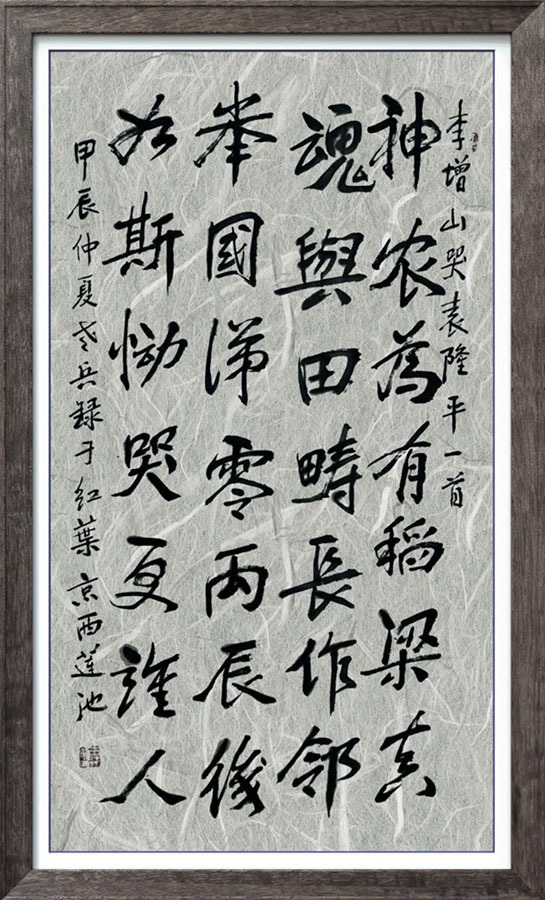 李增山哭袁隆平一首
神农為有稻梁真
魂與田疇長作邻
举國涕零丙辰後
如斯恸哭更誰人
甲辰仲夏老兵録于红葉京西蓮池